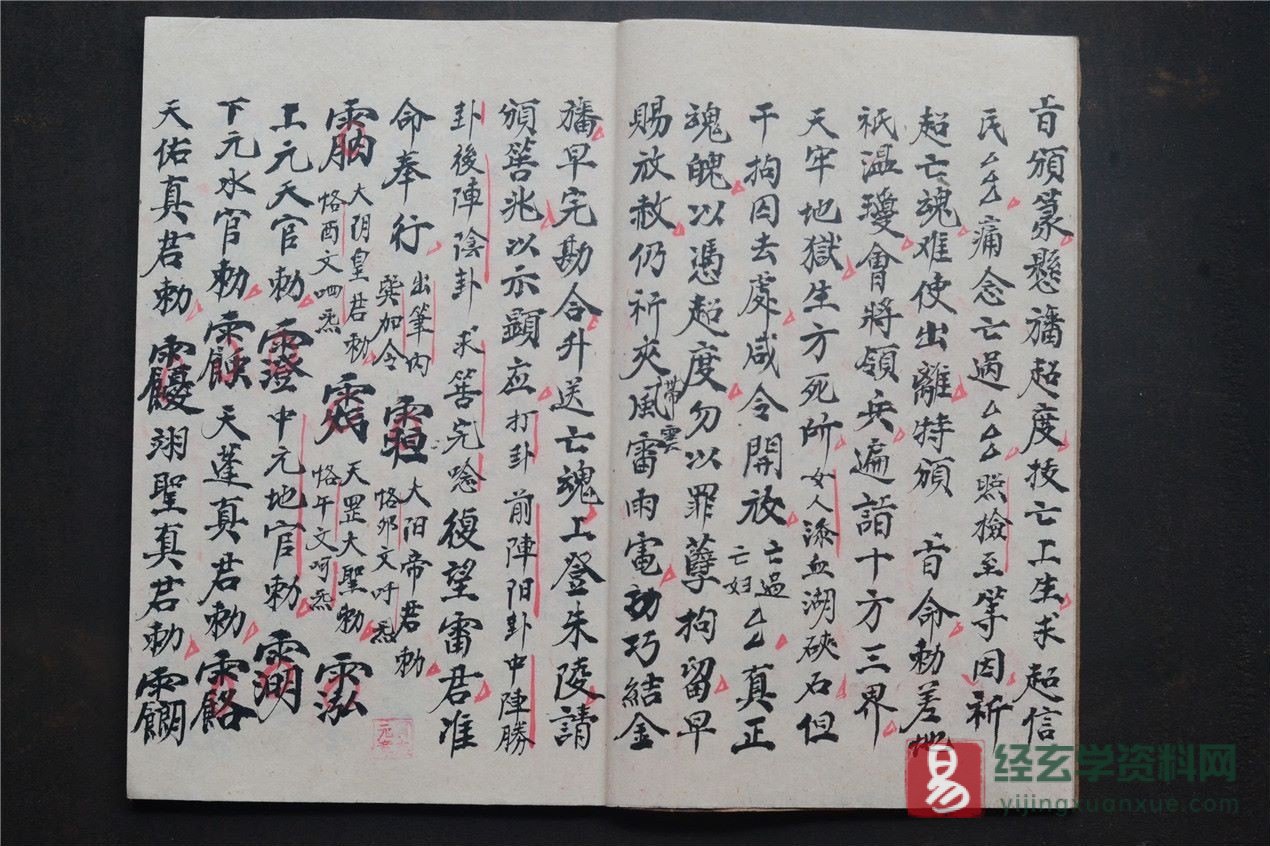 旨頒篆懸旛超度技亡上生求超信
民厶厶痛念亡過厶厶照撿至等因祈
超亡魂难使出離特頒 旨命勅差地
祇温瓊會將領兵遍詣十方三界
天牢地獄生方死所女人添血湖硤石但
干拘囚去處咸令開放亡過亡妇厶厶真正
魂魄以憑超度勿以罪孽拘留早
賜放赦仍祈夾風帶雲雷雨電劝巧結金
旛早完勘合升送亡魂上登朱陵請
頒筶兆以示顕应打卦前陣阳卦中陣勝
卦後陣陰卦求筶完唸復望雷君准
命奉行出筆内巽加令大阳帝君勅恪夘文呼炁
大阴皇君勅恪酉文呬炁天罡大聖勅恪午文呵炁
上元天官勅中元地官勅
下元水官勅天蓬真君勅
天佑真君勅翊聖真君勅
易
经玄学资料网
yijingxuanxue.com